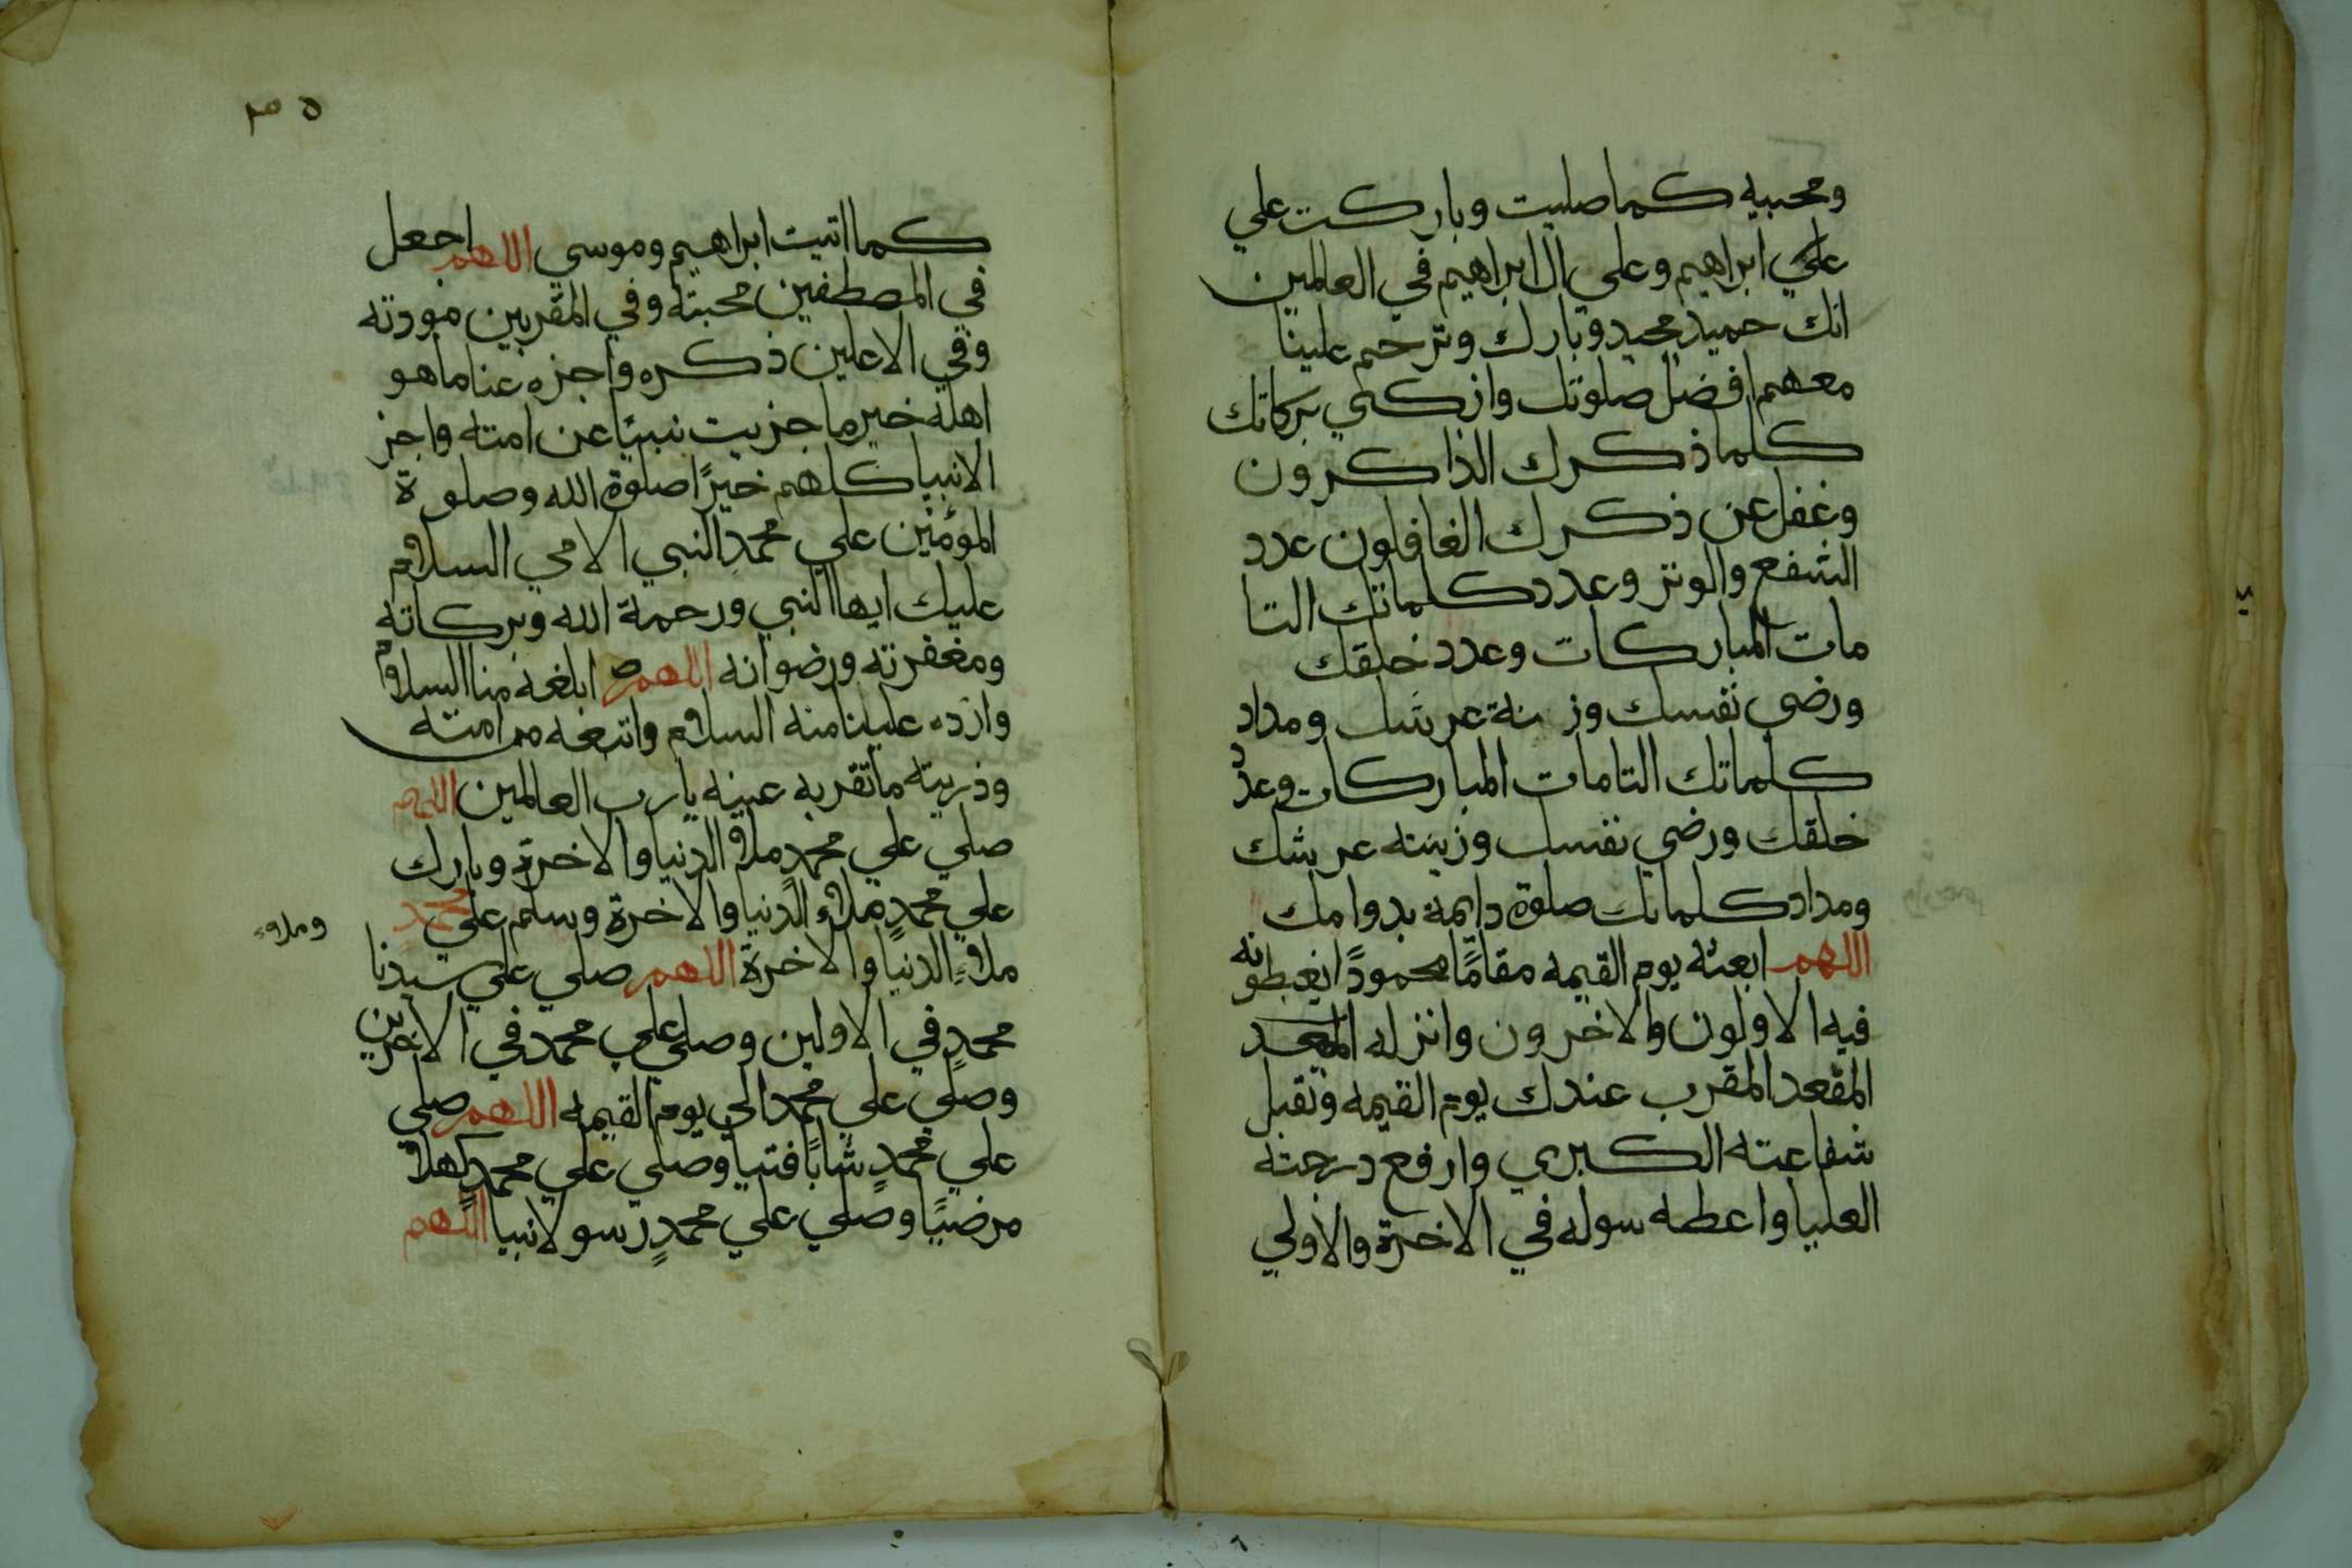 ومحبيه كما صليت وباركت علي
علي ابراهيم وعلي ال ابراهيم في العالمين
انك حميد مجيد وبارك وترحم علينا
معهم افضل صلوتك وازكي بركاتك
كلما ذكرك الذاكرون
وغفل عن ذكرك الغافلون عدد
الشفع والوتر وعدد كلماتك التا
مات المباركات وعدد خلقك
ورضي نفسك وزنة عرشك ومداد
كلماتك التامات المباركات وعدد
خلقك ورضي نفسك وزينته عرشك
ومداد كلماتك صلوة دايمة بدوامك
اللهم ابعثه يوم القيمه مقامًا محمودًا يغبطونه
فيه الاولون والاخرون وانزله
المقعد المقرب عندك يوم القيمه وتقبل
شفاعته الكبري وارفع درجته
العليا واعطه سوله في الاخرة والاولي
٣٥
كما اتيت ابراهيم وموسي اللهم اجعل
في المصطفين محبته وفي المقربين مودته
وفي الاعلين ذكره واجزه عنا ما هو
اهله خير ما جزيت نبيًا عن امته واجز
الانبيا كلهم خيرًا صلوة الله وصلوة
المؤمنين علي محمدٍ النبي الامي السلام
عليك ايها النبي ورحمة الله وبركاته
ومغفرته ورضوانه اللهم ابلغه منا السلام
واردد علينا منه السلام واتبعه من امته
وذريته ما تقر به عينه يارب العالمين اللهم
صلي علي محمدٍ ملاء الدنيا والاخرة وبارك
علي محمدٍ ملاء الدنيا والاخرة وسلم علي محمد
وملاء
ملاء الدنيا والاخرة اللهم صلي علي سيدنا
محمدٍ في الاولين وصلي علي محمد في الاخرين
وصلي علي محمد الي يوم القيمه اللهم صلي
علي محمدٍ شابًا فتيا وصلي علي محمدٍ كهلاً
مرضيًا وصلي علي محمدٍ رسولا نبيا اللهم